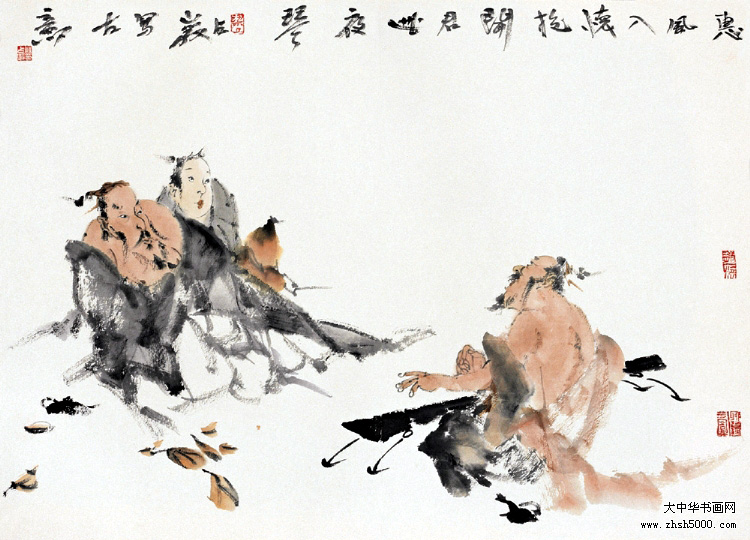 惠風入懷抱聞君此夜琴占巖寫古意
大中华书画网
www.zhsh5000.com